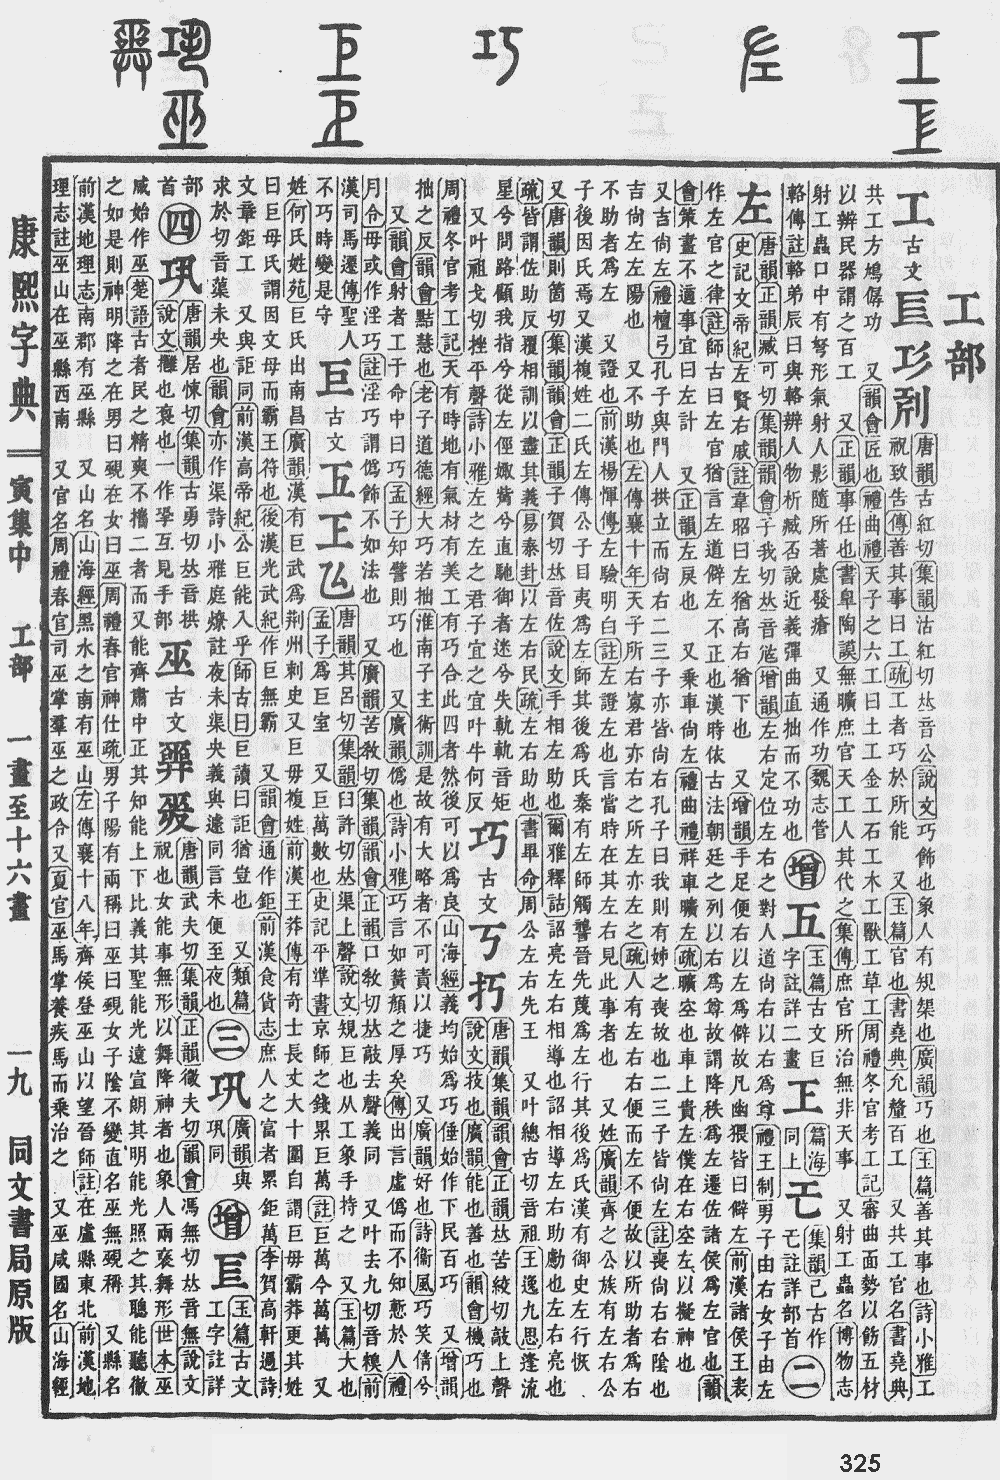 康熙字典 寅集中 工部 一畫至十六畫 一九 同文書局原版
工部
工 古文 唐韻古紅切集韻沽紅切𠀤音公說文巧飾也象人有規榘也廣韻巧也玉篇善其事也詩小雅工
祝致告傳善其事曰工疏工者巧於所能 又玉篇官也書堯典允釐百工 又共工官名書堯典
共工方鳩僝功 又韻會匠也禮曲禮天子之六工曰土工金工石工木工獸工草工周禮冬官考工記審曲面勢以飭五材
以辨民器謂之百工 又正韻事任也書臯陶謨無曠庶官天工人其代之集傳庶官所治無非天事 又射工蟲名博物志
射工蟲口中有弩形氣射人影隨所著處發瘡 又通作功魏志管
輅傳註輅弟辰曰與輅辨人物析臧否說近義彈曲直拙而不功也
增 玉篇古文巨字註詳二畫 篇海同上 集韻己古作 註詳部首
二
左 唐韻正韻臧可切集韻韻會子我切𠀤音 增韻左右定位左右之對人道尚右以右爲尊禮王制男子由右女子由左
史記文帝紀左賢右戚註韋昭曰左猶高右猶下也 又增韻手足便右以左爲僻故凡幽猥皆曰僻左前漢諸侯王表
作左官之律註師古曰左官猶言左道僻左不正也漢時依古法朝廷之列以右爲尊故謂降秩爲左遷佐諸侯爲左官也韻
會策畫不適事宜曰左計 又正韻左戾也 又乗車尚左禮曲禮祥車曠左疏曠空也車上貴左僕在右空左以擬神也
又吉尚左禮檀弓孔子與門人拱立而尚右二三子亦皆尚右孔子曰我則有姊之喪故也二三子皆尚左註喪尚右右陰也
吉尚左左陽也 又不助也左傳襄十年天子所右寡君亦右之所左亦左之疏人有左右右便而左不便故以所助者爲右
不助者爲左 又證也前漢楊惲傳左驗明白註左證左也言當時在其左右見此事者也 又姓廣韻齊之公族有左右公
子後因氏焉又漢複姓二氏左傳公子目夷爲左師其後爲氏秦有左師觸讋晉先蔑爲左行其後爲氏漢有御史左行恢
又唐韻則箇切集韻韻會正韻子賀切𠀤音佐說文手相左助也爾雅釋詁詔亮左右相導也詔相導左右助勴也左右亮也
疏皆謂佐助反覆相訓以盡其義易泰卦以左右民疏左右助也書畢命周公左右先王 又叶總古切音祖王逸九思逢流
星兮問路顧我指兮從左俓娵觜兮直馳御者迷兮失軌軌音矩
又叶祖戈切挫平聲詩小雅左之左之君子宜之宜叶牛何反
巧 古文丂 唐韻集韻韻會正韻𠀤苦絞切敲上聲
說文技也廣韻能也善也韻會機巧也
周禮冬官考工記天有時地有氣材有美工有巧合此四者然後可以爲良山海經義均始爲巧倕始作下民百巧 又增韻
拙之反韻會黠慧也老子道德經大巧若拙淮南子主術訓是故有大略者不可責以捷巧 又廣韻好也詩衞風巧笑倩兮
又韻會射者工于命中曰巧孟子知譬則巧也 又廣韻僞也詩小雅巧言如簧顏之厚矣傳出言虛僞而不知慙於人禮
月令毋或作淫巧註淫巧謂僞飾不如法也 又廣韻苦敎切集韻韻會正韻口敎切𠀤敲去聲義同 又叶去九切音糗前
漢司馬遷傳聖人
不巧時變是守
巨 古文 唐韻其呂切集韻臼許切𠀤渠上聲說文規巨也从工象手持之 又玉篇大也
孟子爲巨室 又巨萬數也史記平準書京師之錢累巨萬註巨萬今萬萬 又
姓何氏姓苑巨氏出南昌廣韻漢有巨武爲荆州刺史又巨毋複姓前漢王莽傳有奇士長丈大十圍自謂巨毋霸莽更其姓
曰巨毋氏謂因文母而霸王符也後漢光武紀作巨無霸 又韻會通作鉅前漢食貨志庶人之富者累鉅萬李賀高軒過詩
文章鉅工 又與詎同前漢高帝紀公巨能入乎師古曰巨讀曰詎猶豈也 又類篇
求於切音蕖未央也韻會亦作渠詩小雅庭燎註夜未渠央義與遽同言未便至夜也
三
巩 廣韻與巩同
增 玉篇古文工字註詳
部首
四
巩 唐韻居悚切集韻古勇切𠀤音拱
說文𢹬也褱也一作 互見手部
巫 古文 唐韻武夫切集韻正韻微夫切韻會馮無切𠀤音無說文
祝也女能事無形以舞降神者也象人兩褎舞形世本巫
咸始作巫楚語古者民之精爽不攜二者而又能齊肅中正其知能上下比義其聖能光遠宣朗其明能光照之其聰能聽徹
之如是則神明降之在男曰覡在女曰巫周禮春官神仕疏男子陽有兩稱曰巫曰覡女子陰不變直名巫無覡稱 又縣名
前漢地理志南郡有巫縣 又山名山海經黑水之南有巫山左傳襄十八年齊侯登巫山以望晉師註在盧縣東北前漢地
理志註巫山在巫縣西南 又官名周禮春官司巫掌羣巫之政令又夏官巫馬掌養疾馬而乗治之 又巫咸國名山海經
325